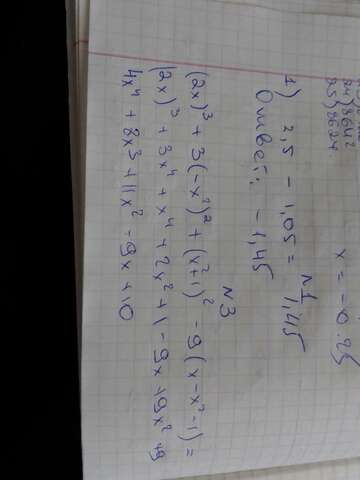 24) 8642
25) 8624
x = -0.25
№1
1) 2,5 - 1,05 = 1,45
Ответ: -1,45
№3
(2x)³ + 3(-x²)² + (x²+1)² - 9(x-x²-1) =
(2x)³ + 3x⁴ + x⁴ + 2x² + 1 - 9x + 9x² + 9
4x⁴ + 8x³ + 11x² - 9x + 10